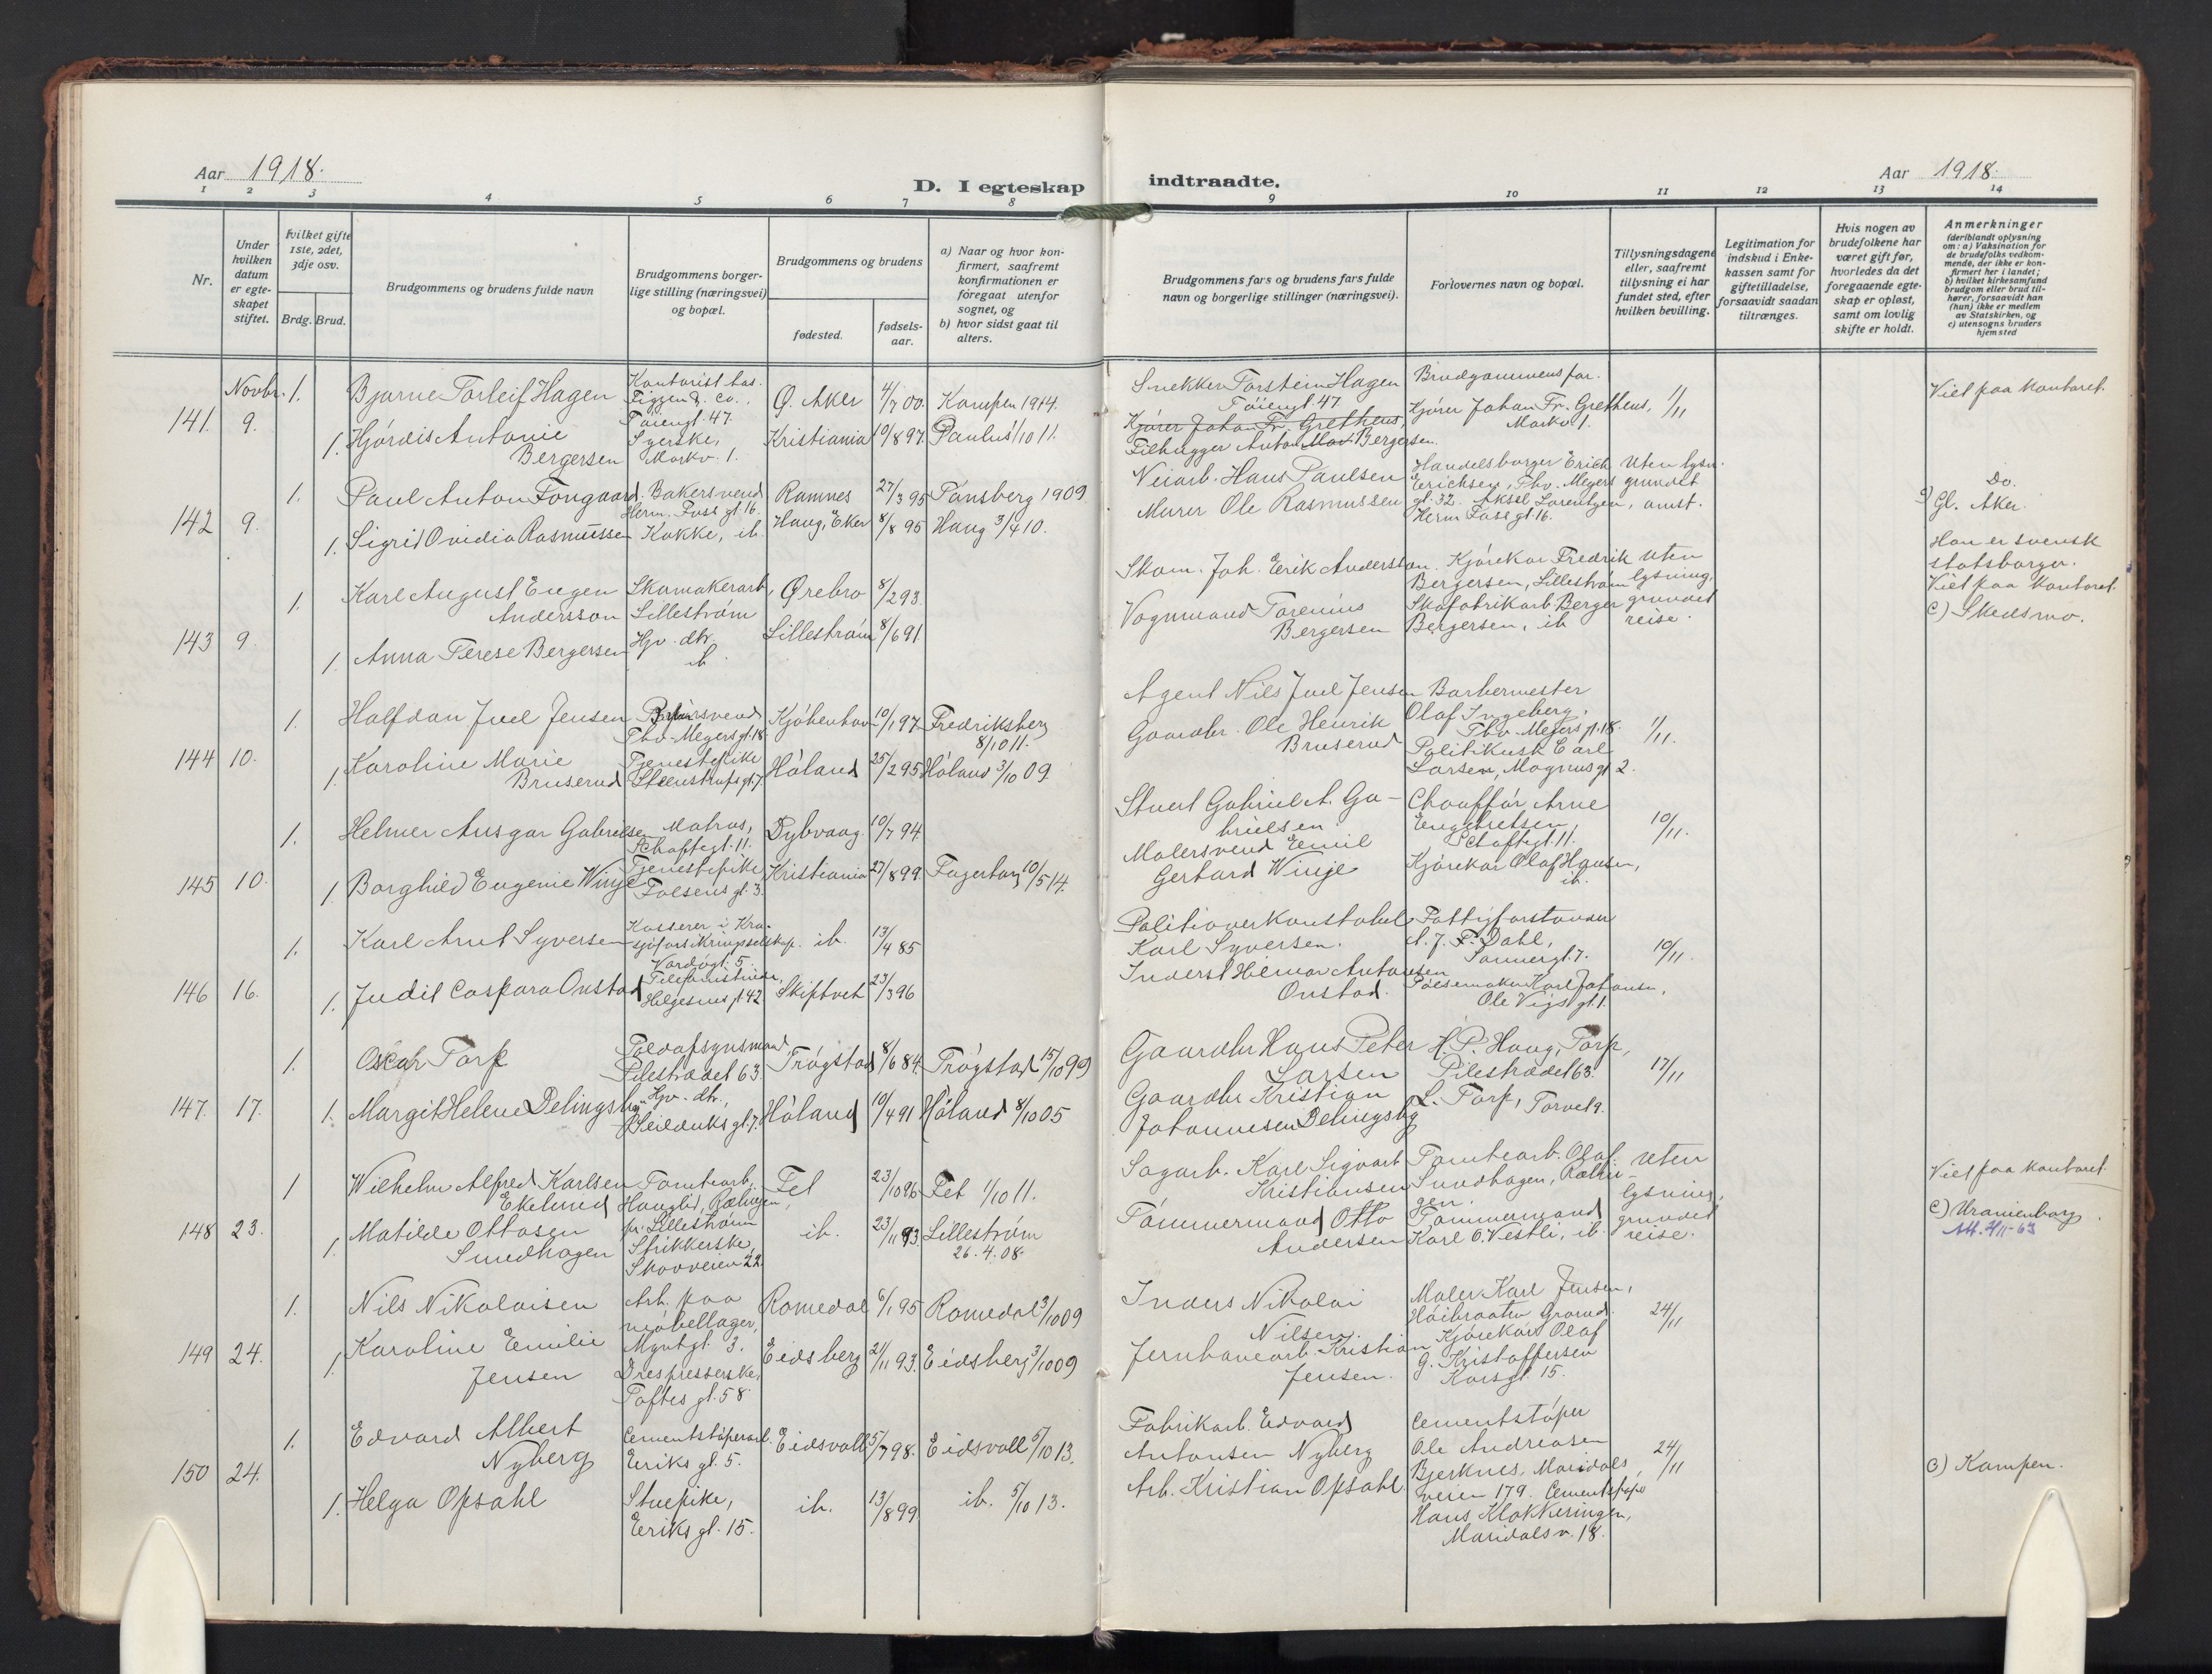 Aar 1918.
D. I egteskap indtraadte.
Aar 1918.
1 2 3 4 5 6 7 8 9 10 11 12 13 14
Nr.
Under hvilken datum er egteskapet stiftet.
Hvilket gifte 1ste, 2det, 3dje osv.
Brdg. Brud.
Brudgommens og brudens fulde navn
Brudgommens borgerlige stilling (næringsvei) og bopæl.
Brudgommens og brudens
fødested.
fødselsaar.
a) Naar og hvor konfirmert, saafremt konfirmationen er foregaat utenfor sognet, og
b) hvor sidst gaat til alters.
Brudgommens fars og brudens fars fulde navn og borgerlige stillinger (næringsvei).
Forlovernes navn og bopæl.
Tillysningsdagene eller, saafremt tillysning ei har fundet sted, efter hvilken bevilling.
Legitimation for indskud i Enkekassen samt for giftetilladelse, forsaavidt saadan tiltrænges.
Hvis nogen av brudefolkene har været gift før, hvorledes da det foregaaende egteskap er opløst, samt om lovlig skifte er holdt.
Anmerkninger
(deriblandt oplysning om: a) Vaksination for de brudefolks vedkommende, der ikke er konfirmert her i landet; b) hvilket kirkesamfund brudgom eller brud tilhører, forsaavidt han (hun) ikke er medlem av Statskirken, og c) utensogns bruders hjemsted
141. Novbr. 9.
1. Bjarne Torleif Hagen
Kontorist hos
Co.,
Tøiengt. 47.
Ø. Aker 4/7 00. Kampen 1914.
Snekker Torstein Hagen
Tøiengt. 47
Brudgommens far.
1/11
Viet paa kontoret.
1. Hjørdis Antonie
Bergersen
Syerske,
Markv. 1.
Kristiania 10/8 97. Paulus 1/10 11.
Kjører Johan Fr. Gretheus,
Filhugger Anton Bergersen.
Kjører Johan Fr. Gretheus,
Markv 1.
142 9.
1. Paul Anton Fongaard. Bakersvend
Herm. Foss gt. 16.
Ramnes 27/3 95 Tønsberg 1909.
Veiarb. Hans Paulsen
Handelsborger Erich
Erichsen, Thv. Meyers
gt. 32. Aksel Lorentzen,
Herm Foss gt. 16.
Uten lysn.
grundet
amst.
Do.
c) Gl. Aker.
1. Sigrid Ovidia Rasmussen Kokke, ib.
Haug, Eker 8/8 95 Haug 3/4 10.
Murer Ole Rasmussen
143 9.
1. Karl August Eugen
Andersson
Skomakerarb,
Lillestrøm
Ørebro 8/2 93.
Skom. Joh. Erik Andersson.
Kjørekar Fredrik
Bergersen, Lillestrøm
Skofabrikarb. Berger
Bergersen, ib
Uten
lysning,
grundet
reise.
Han er svensk
statsborger.
Viet paa kontoret.
c) Skedsmo.
1. Anna Terese Bergersen
Hjv. dtr.
ib
Lillestrøm 8/6 91.
Vognmand Torenius
Bergersen
144 10.
1. Halfdan Juel Jensen
Barbersvend
Thv. Meyers gt. 18
Kjøbenhavn 10/1 97. Fredriksberg
8/10 11.
Agent Nils Juel Jensen
Barbermester
Olaf Ingeberg,
Thv. Meyers gt. 18.
Politikonst. Carl
Larsen, Magnus gt 2.
1/11.
1. Karoline Marie
Bruserud
Tjenestepike
Steenstrups gt. 7.
Høland 25/2 95 Høland 3/10 09.
Gaardbr. Ole Henrik
Bruserud
145 10.
1. Helmer Ansgar Gabrielsen
Matros,
Schoftegt. 11.
Dybvaag. 10/7 94.
Stuert Gabriel A. Ga-
brielsen.
Chauffør Arne
Engebretsen,
Schoftegt. 11.
Kjørekar Olaf Hansen,
ib.
10/11.
1. Borghild Eugenie Winje
Tjenestepike
Toesens gt. 3.
Kristiania 27/8 99. Fagerborg 10/5 14.
Malersvend Emil
Gerhard Winje
146 16.
1. Karl Arnt Syversen
Kasserer i Kra.
sjøforsikringsselskap.
Vardøgt. 5.
ib. 13/4 85
Politioverkonstabel
Karl Syversen.
Fattigforstander
A. J. P. Dahl,
Sannergt. 7.
10/11.
1. Judit Caspara Onstad
Telefonistinde,
Helgesens gt. 42.
Skiptvet 23/3 96
Inderst Hilmar Antonsen
Onstad.
Pølsemaker Karl Johansen,
Ole Vigs gt. 1.
147. 17.
1. Oscar Torp
Toldopsynsmand,
Pilestrædet 63.
Trøgstad 8/6 84. Trøgstad 15/10 99
Gaardbr Hans Peter
Larsen
H. P. Haug, Torp,
Pilestrædet 63.
17/11
1. Margit Helene Delingsby
Hjv. dtr.,
Seilduks gt. 7.
Høland 10/4 91 Høland 8/10 05
Gaardbr Kristian
Johannesen Delingsby
L. Torp, Torvet 9.
148 23.
1 Wilhelm Alfred Karlsen
Ekelund
Tomtearb.
Hauglid, Rælingen,
pr. Lillestrøm
Fet 23/10 96 Fet 1/10 11.
Sagarb. Karl Sigvart
Kristiansen
Tomtearb. Olaf
Sundhagen, Rælin-
gen.
Tømmermand
Karl O. Vestli, ib.
Uten
lysning,
grundet
reise.
Viet paa kontoret.
c) Uranienborg.
1. Matilde Ottosen
Sundhagen
Strikkerske,
Skovveien 22.
ib. 23/11 93. Lillestrøm
26.4.08.
Tømmermand Otto
Andersen
149 24.
1. Nils Nikolaisen
Arb. paa
møbellager,
Myntgt. 3.
Romedal 6/1 95 Romedal 3/10 09
Inders Nikolai
Nilsen.
Maler Karl Jensen,
Høibraaten Grorud.
Kjørekar Olaf
G. Kristoffersen
Korsgt. 15.
24/11
1. Karoline Emilie
Jensen
Drespresserske,
Toftes gt. 58.
Eidsberg 21/11 93. Eidsberg 3/10 09
Jernbanearb. Kristian
Jensen.
150 24.
1. Edvard Albert
Nyberg
Cementstøperarb.
Eeriks gt. 5.
Eidsvoll 5/7 98. Eidsvoll 5/10 13.
Fabrikarb. Edvard
Antonsen Nyberg
Cementstøper
Ole Andreasen
Bjerknes, Maridals
veien 179. Cementstøper
Hans Klokkeringen,
Maridalsv. 18.
24/11
c) Kampen.
1. Helga Opsahl
Stuepike,
Eeriks gt. 15.
ib. 13/8 99. ib. 5/10 13.
Arb. Kristian Opsahl.